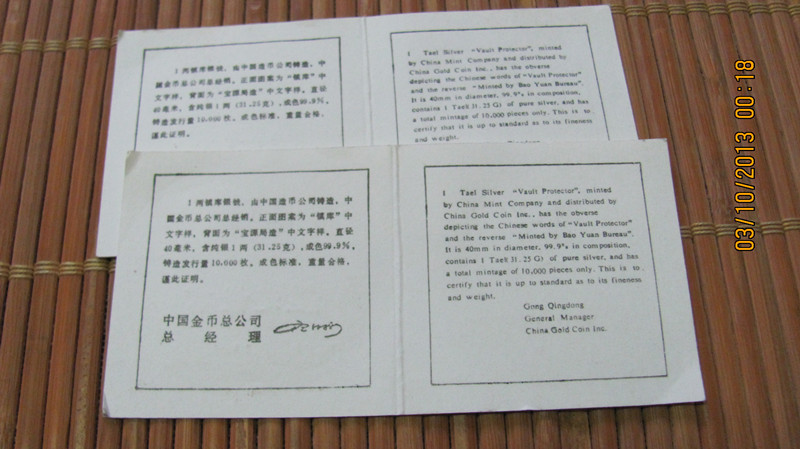 1两镇库银钱，由中国造币公司铸造，中
国金币总公司总经销。正面图案为“镇库”中
文字样，背面为“宝源局造”中文字样。直径
40毫米，含纯银1两（31.25克），成色99.9%，
铸造发行量10,000枚。成色标准，重量合格，
谨此证明。
1 Tael Silver "Vault Protector", minted
by China Mint Company and distributed by
China Gold Coin Inc., has the obverse
depicting the Chinese words of "Vault Protector"
and the reverse "Minted by Bao Yuan Bureau".
It is 40mm in diameter, 99.9% in composition,
contains 1 Tael (31.25G) of pure silver, and has
a total mintage of 10,000 pieces only. This is to
certify that it is up to standard as to its fineness
and weight.
1两镇库银钱，由中国造币公司铸造，中
国金币总公司总经销。正面图案为“镇库”中
文字样，背面为“宝源局造”中文字样。直径
40毫米，含纯银1两（31.25克），成色99.9%，
铸造发行量10,000枚。成色标准，重量合格，
谨此证明。
中国金币总公司
总经理
1 Tael Silver "Vault Protector", minted
by China Mint Company and distributed by
China Gold Coin Inc., has the obverse
depicting the Chinese words of "Vault Protector"
and the reverse "Minted by Bao Yuan Bureau".
It is 40mm in diameter, 99.9% in composition,
contains 1 Tael( 31.25G) of pure silver, and has
a total mintage of 10,000 pieces only. This is to
certify that it is up to standard as to its fineness
and weight.
Gong Qingdong
General Manager
China Gold Coin Inc.
03/10/2013 00:18